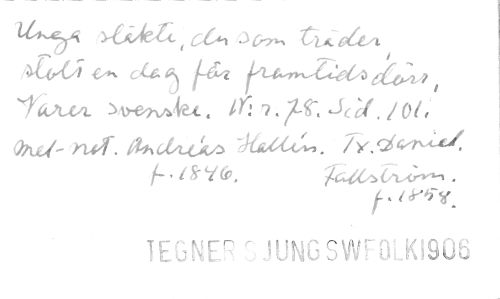 Unga släkte, du som träder,
stolt en dag för framtidsdörr,
Varer svenske. N:r. 78. Sid. 101.
mel-not. Andréas Hallén. Tx. Daniel.
f. 1846. Fallström.
f. 1858.
TEGNER SJUNG SWFOLK1906